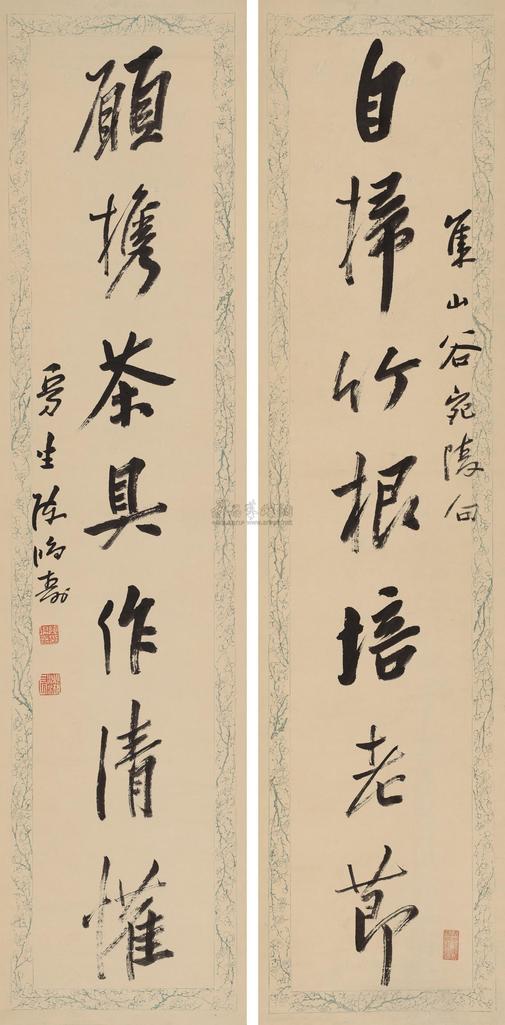 集山谷宛陵句
自掃竹根培老節
顧攜茶具作清懽
曼生陳鴻壽